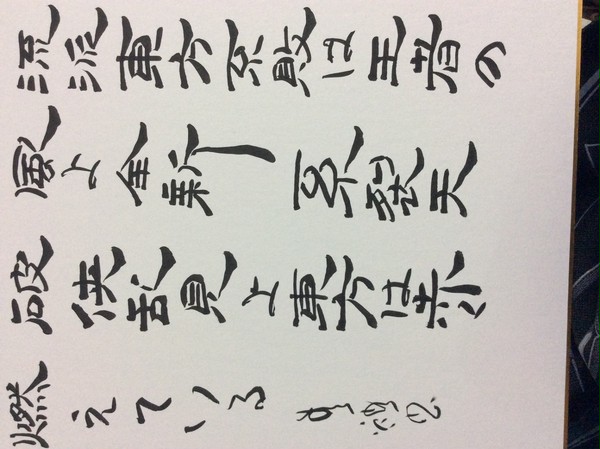 流派東方不敗は王者の
風よ全新系裂天
破侠乱見よ東方は赤く
燃えている